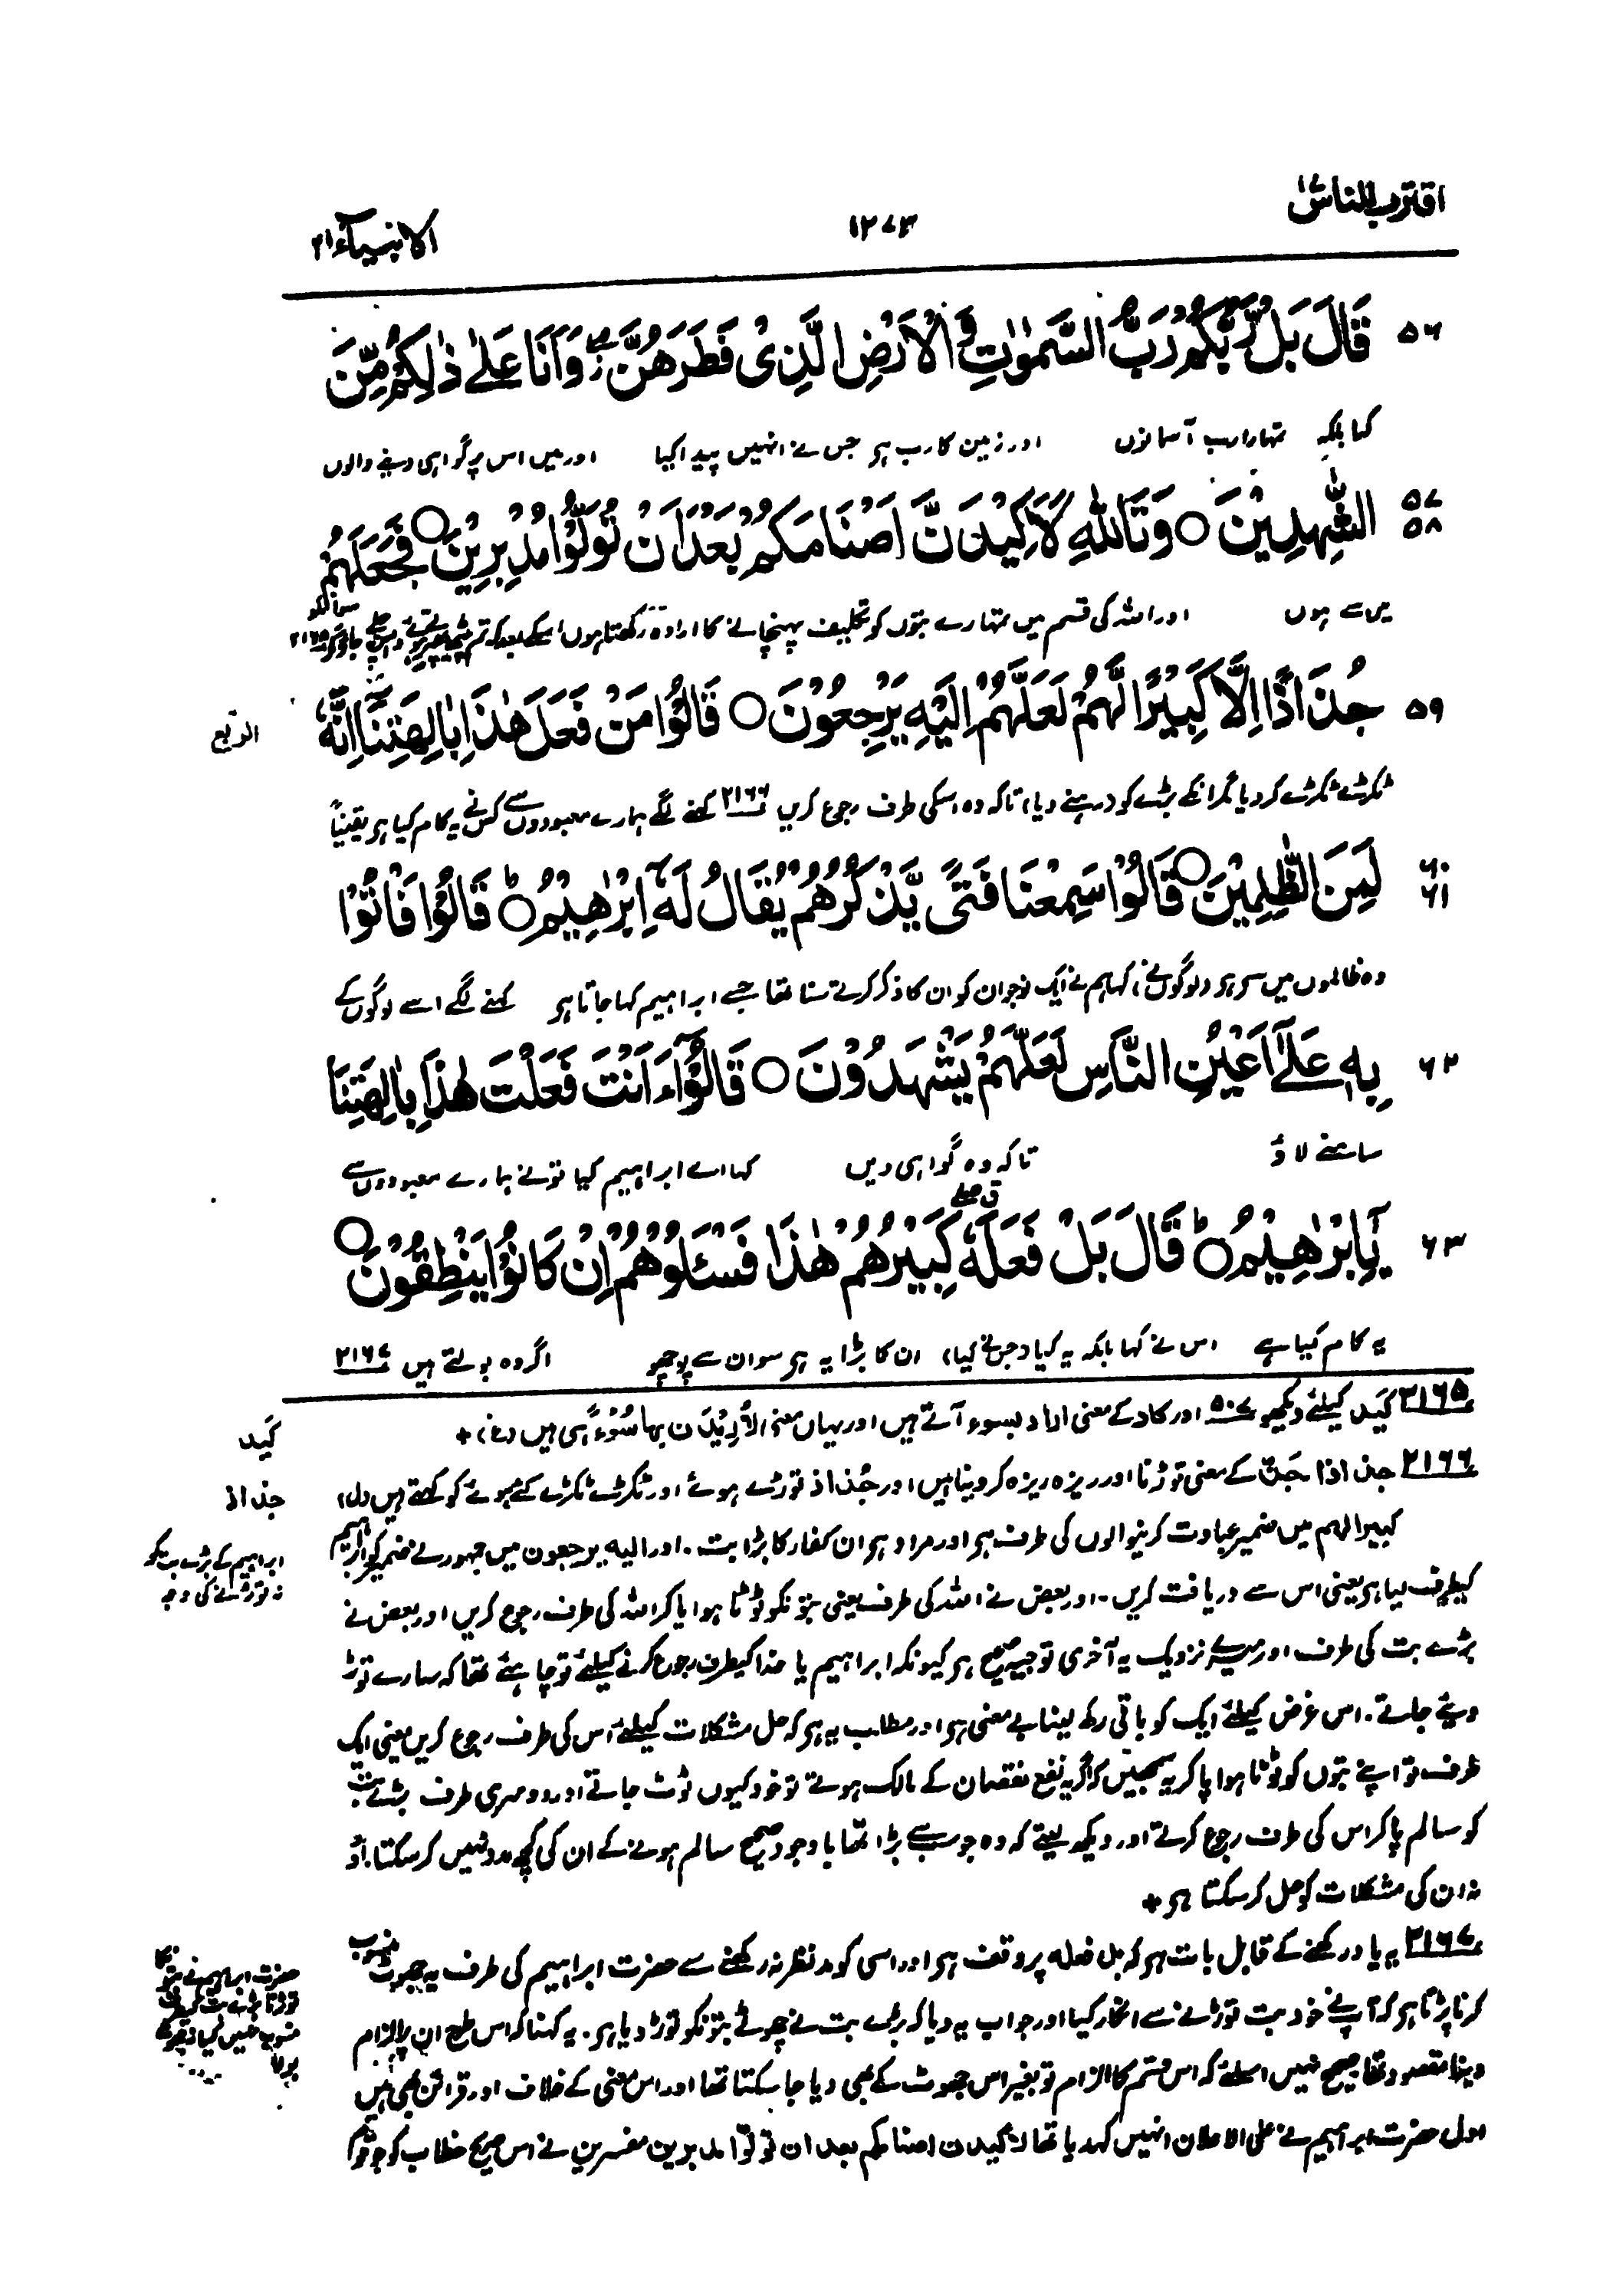 اقترب للناس ١٧
١٢٧٣
الانبیآء ٢١
٥٦ قَالَ بَلْ رَّبُّكُمْ رَبُّ السَّمٰوٰتِ وَالْاَرْضِ الَّذِیْ فَطَرَهُنَّ ۖ وَاَنَا عَلٰى ذٰلِكُمْ مِّنَ
کہا بلکہ تمہارا رب آسمانوں اور زمین کا رب ہر جس نے انہیں پیدا کیا اور میں اس پر گواہی دینے والوں
٥٧ ٥٨ الشّٰهِدِیْنَ ○ وَتَاللّٰهِ لَاَكِیْدَنَّ اَصْنَامَكُمْ بَعْدَ اَنْ تُوَلُّوْا مُدْبِرِیْنَ ○ فَجَعَلَهُمْ
میں سے ہوں اور اللہ کی قسم میں تمہارے بتوں کو تکلیف پہنچانے کا ارادہ رکھتا ہوں اسکے بعد کہ تم پیٹھ پھیرتے ہوئے واپس چلے جاؤ گے ٢١٦٥ سو انکو
٥٩ جُذَاذًا اِلَّا كَبِیْرًا لَّهُمْ لَعَلَّهُمْ اِلَیْهِ یَرْجِعُوْنَ ○ قَالُوْا مَنْ فَعَلَ هٰذَا بِاٰلِهَتِنَآ اِنَّهٗ
الربع
ٹکڑے ٹکڑے کر دیا مگر انکے بڑے کو (رہنے دیا) تاکہ وہ اسکی طرف رجوع کریں ٢١٦٦ کہنے لگے ہمارے معبودوں سے کس نے یہ کام کیا ہر یقیناً
٦٠ ٦١ لَمِنَ الظّٰلِمِیْنَ ○ قَالُوْا سَمِعْنَا فَتًى یَّذْكُرُهُمْ یُقَالُ لَهٗٓ اِبْرٰهِیْمُ ○ قَالُوْا فَاْتُوْا
وہ ظالموں میں سے ہر (لوگوں نے) کہا ہم نے ایک نوجوان کو ان کا ذکر کرتے سنا تھا جسے ابراہیم کہا جاتا ہر کہنے لگے اسے لوگوں کے
٦٢ بِهٖ عَلٰٓى اَعْیُنِ النَّاسِ لَعَلَّهُمْ یَشْهَدُوْنَ ○ قَالُوْٓا ءَاَنْتَ فَعَلْتَ هٰذَا بِاٰلِهَتِنَا
سامنے لاؤ تاکہ وہ گواہی دیں کہا اے ابراہیم کیا تو نے ہمارے معبودوں سے
٦٣ یٰٓاِبْرٰهِیْمُ ○ قَالَ بَلْ فَعَلَهٗ كَبِیْرُهُمْ هٰذَا فَسْـَٔلُوْهُمْ اِنْ كَانُوْا یَنْطِقُوْنَ ○
یہ کام کیا ہے اس نے کہا بلکہ یہ کیا (جس نے کیا) ان کا بڑا یہ ہر سو ان سے پوچھو اگر وہ بولتے ہیں ٢١٦٧
٢١٦٥ کَید کیلئے دیکھو ٥٠٧ اور کاد کے معنی اراد بسوء آتے ہیں اور یہاں معنی لاُریدن بہا سُوْءًا ہی ہیں (غ) +
کَید
٢١٦٦ جذاذا جَذّ کے معنی توڑنا اور ریزہ ریزہ کر دینا ہیں اور جُذاذ توڑے ہوئے اور ٹکڑے ٹکڑے کئے ہوئے کو کہتے ہیں (ل)
جذاذ
کبیرا لہم میں ضمیر عبادت کرنیوالوں کی طرف ہر اور مراد ہر ان کفار کا بڑا بت ۔ اور الیہ یرجعون میں جمہور نے ضمیر کو ابراہیم
ابراہیم کے بڑے بت کو
نہ توڑنے کی وجہ
کیطرف لیا ہر یعنی اس سے دریافت کریں ۔ اور بعض نے اللہ کی طرف یعنی بتونکو ٹوٹا ہوا پاکر اللہ کی طرف رجوع کریں اور بعض نے
بڑے بت کی طرف اور میرے نزدیک یہ آخری توجیہ صحیح ہر کیونکہ ابراہیم یا خدا کیطرف رجوع کرنے کیلئے تو چاہئے تھا کہ سارے توڑ
دیئے جاتے ۔ اس غرض کیلئے ایک کو باقی رکھ لینا بے معنی ہر اور مطلب یہ ہر کہ حل مشکلات کیلئے اس کی طرف رجوع کریں یعنی ایک
طرف تو اپنے بتوں کو ٹوٹا ہوا پاکر یہ سمجھیں کہ اگر یہ نفع نقصان کے مالک ہوتے تو خود کیوں ٹوٹ جاتے اور دوسری طرف بڑے بت
کو سالم پاکر اس کی طرف رجوع کرتے اور دیکھ لیتے کہ وہ جو سب سے بڑا تھا باوجود صحیح سالم ہونے کے ان کی کچھ مدد نہیں کر سکتا۔ اور
نہ ان کی مشکلات کو حل کر سکتا ہر +
٢١٦٧ یہ یاد رکھنے کے قابل بات ہر کہ بل فعلہ پر وقف ہر اور اسی کو مدنظر نہ رکھنے سے حضرت ابراہیم کی طرف یہ جھوٹ منسوب
حضرت ابراہیم نے بتونکا
توڑنا بڑے بت کیطرف
منسوب نہیں کیا نہ جھوٹ
بولا
کرنا پڑتا ہر کہ آپ نے خود بت توڑنے سے انکار کیا اور جواب یہ دیا کہ بڑے بت نے چھوٹے بتونکو توڑ دیا ہر ۔ یہ کہنا کہ اس طرح ان پر الزام
دینا مقصود تھا صحیح نہیں اسلئے کہ اس قسم کا الزام تو بغیر اس جھوٹ کے بھی دیا جا سکتا تھا اور اس معنی کے خلاف اور قرائن بھی ہیں
اول حضرت ابراہیم نے علی الاعلان انہیں کہدیا تھا لاکیدن اصنامکم بعد ان تولّوا مدبرین مفسرین نے اس صریح خطاب کو جو توٗا